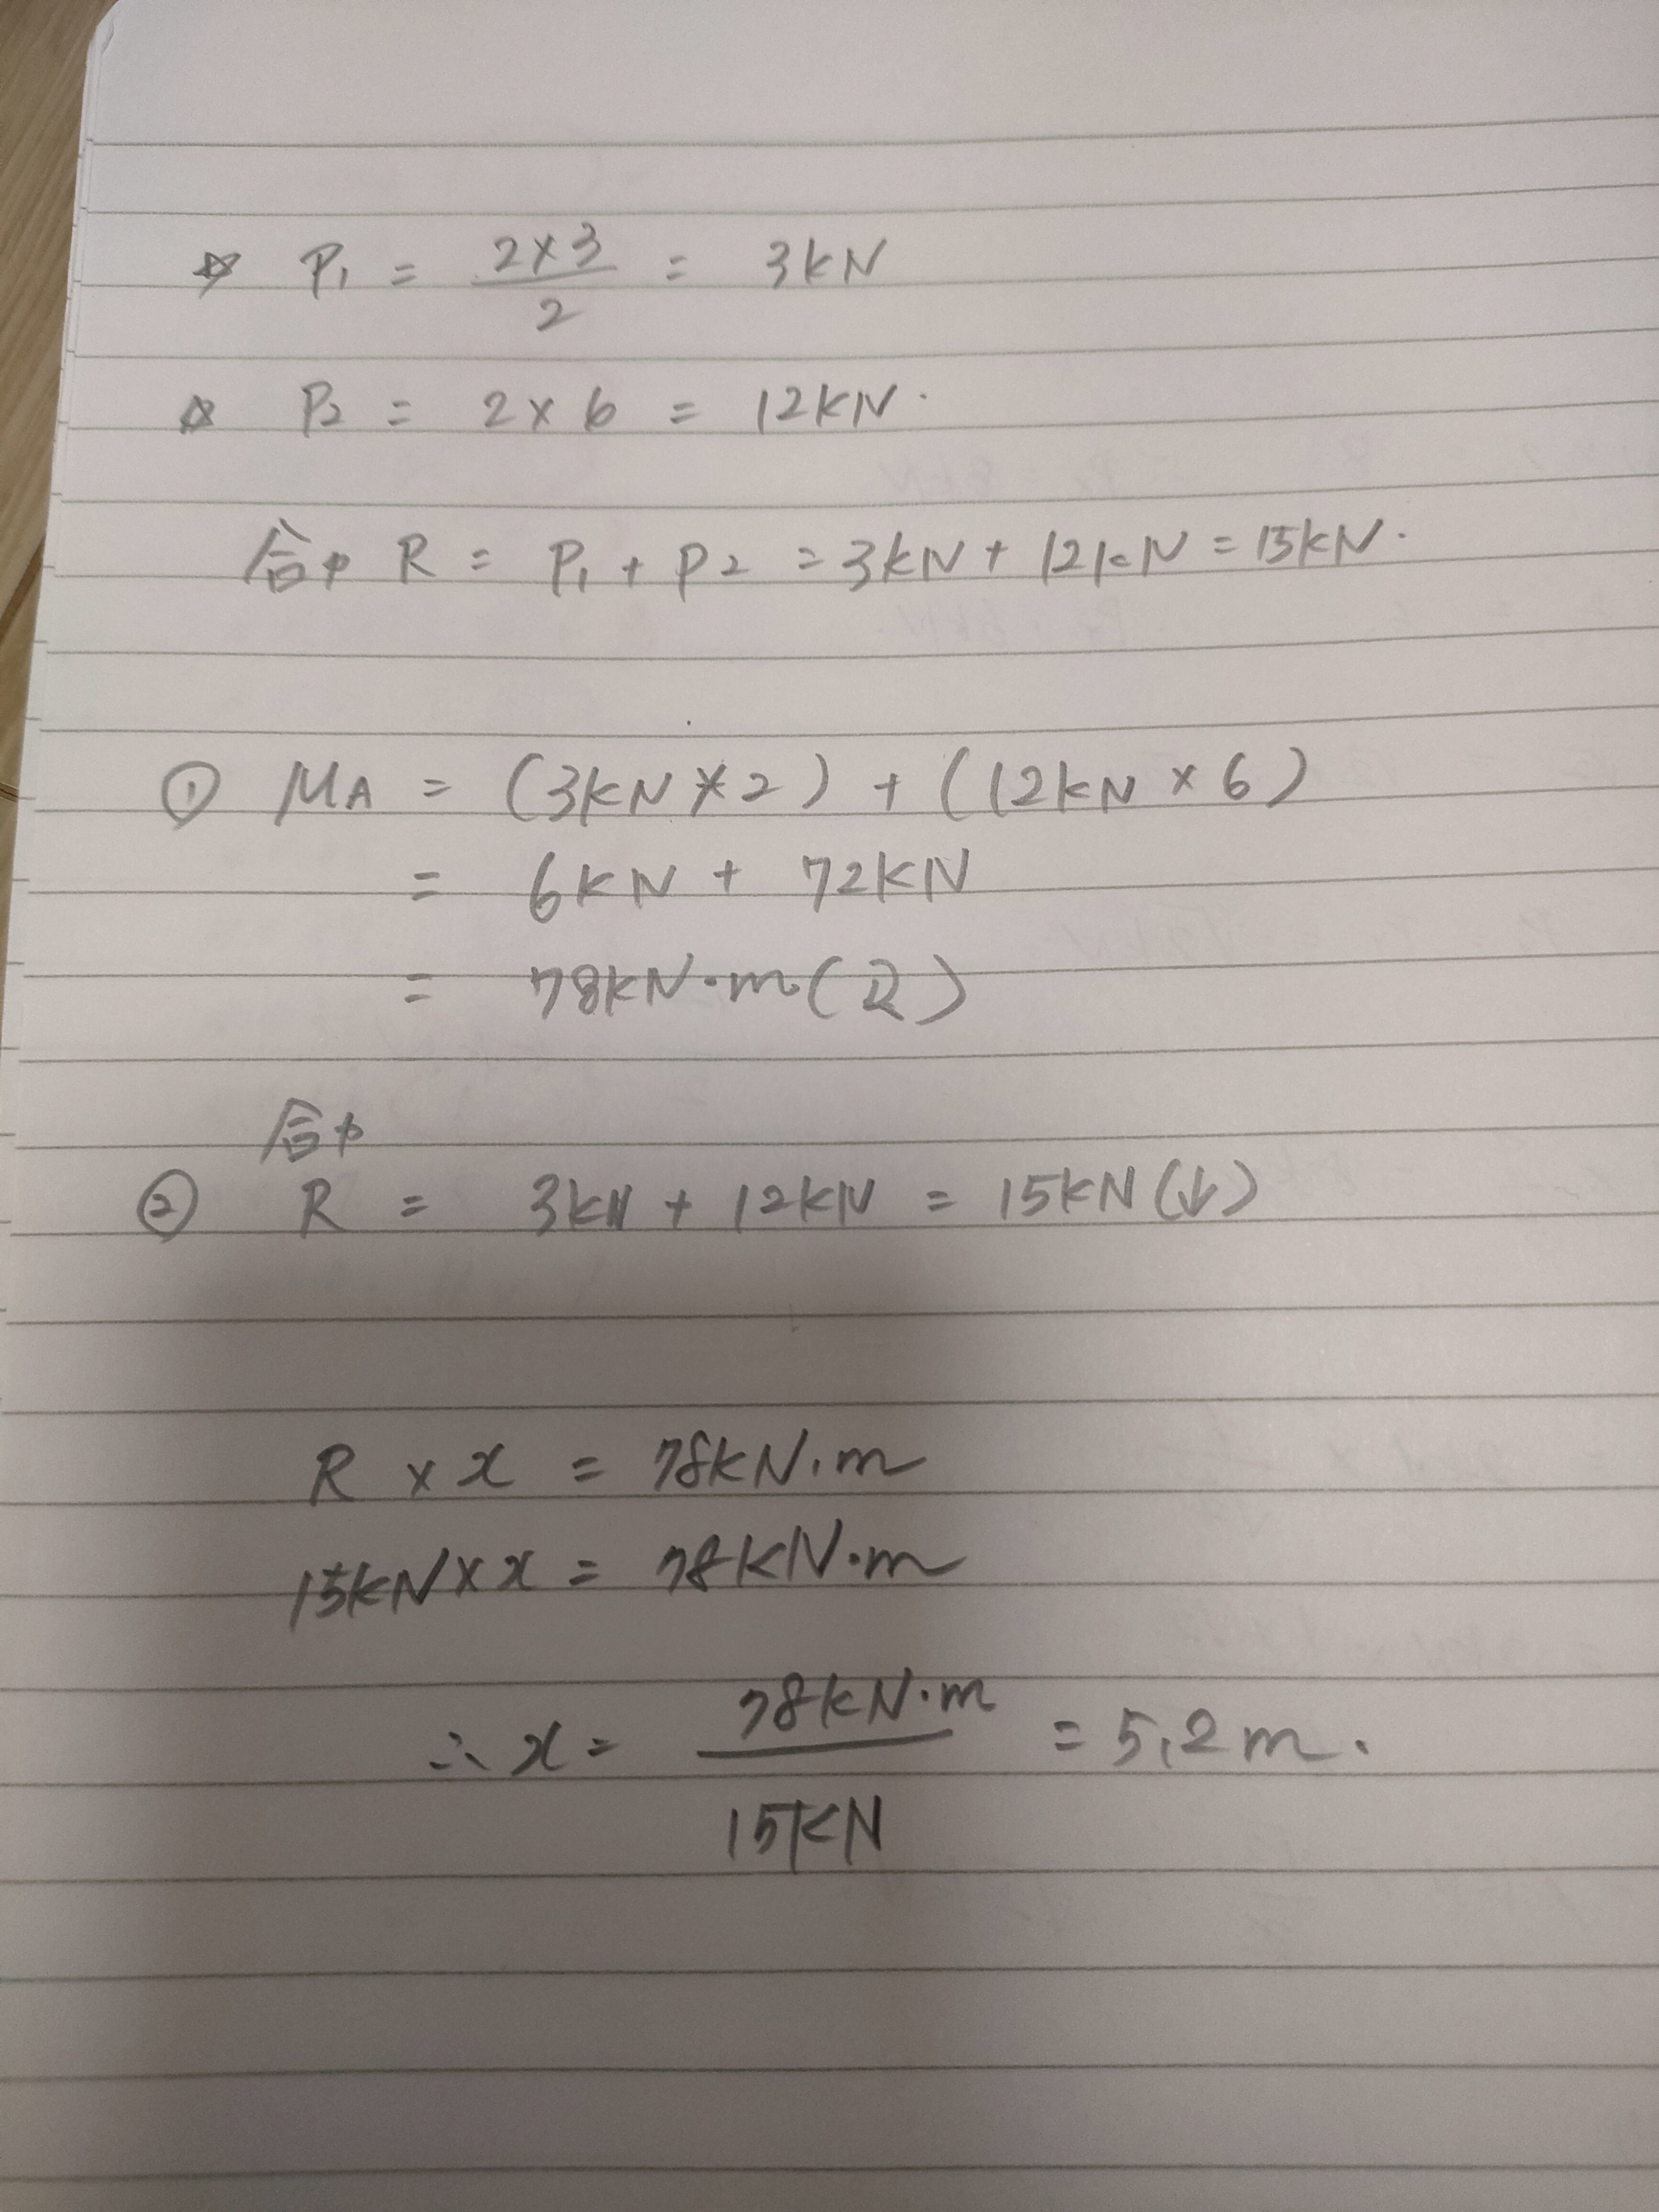 ☆ P₁ = 2×3/2 = 3kN
☆ P₂ = 2×6 = 12kN.
合力 R = P₁ + P2 = 3kN + 12kN = 15kN.
① MA = (3kN×2) + (12kN×6)
= 6kN + 72kN
= 78kN·m(⤵)
合力
② R = 3kN + 12kN = 15kN(↓)
R × x = 78kN·m
15kN×x = 78kN·m
∴ x = 78kN·m/15kN = 5.2m.